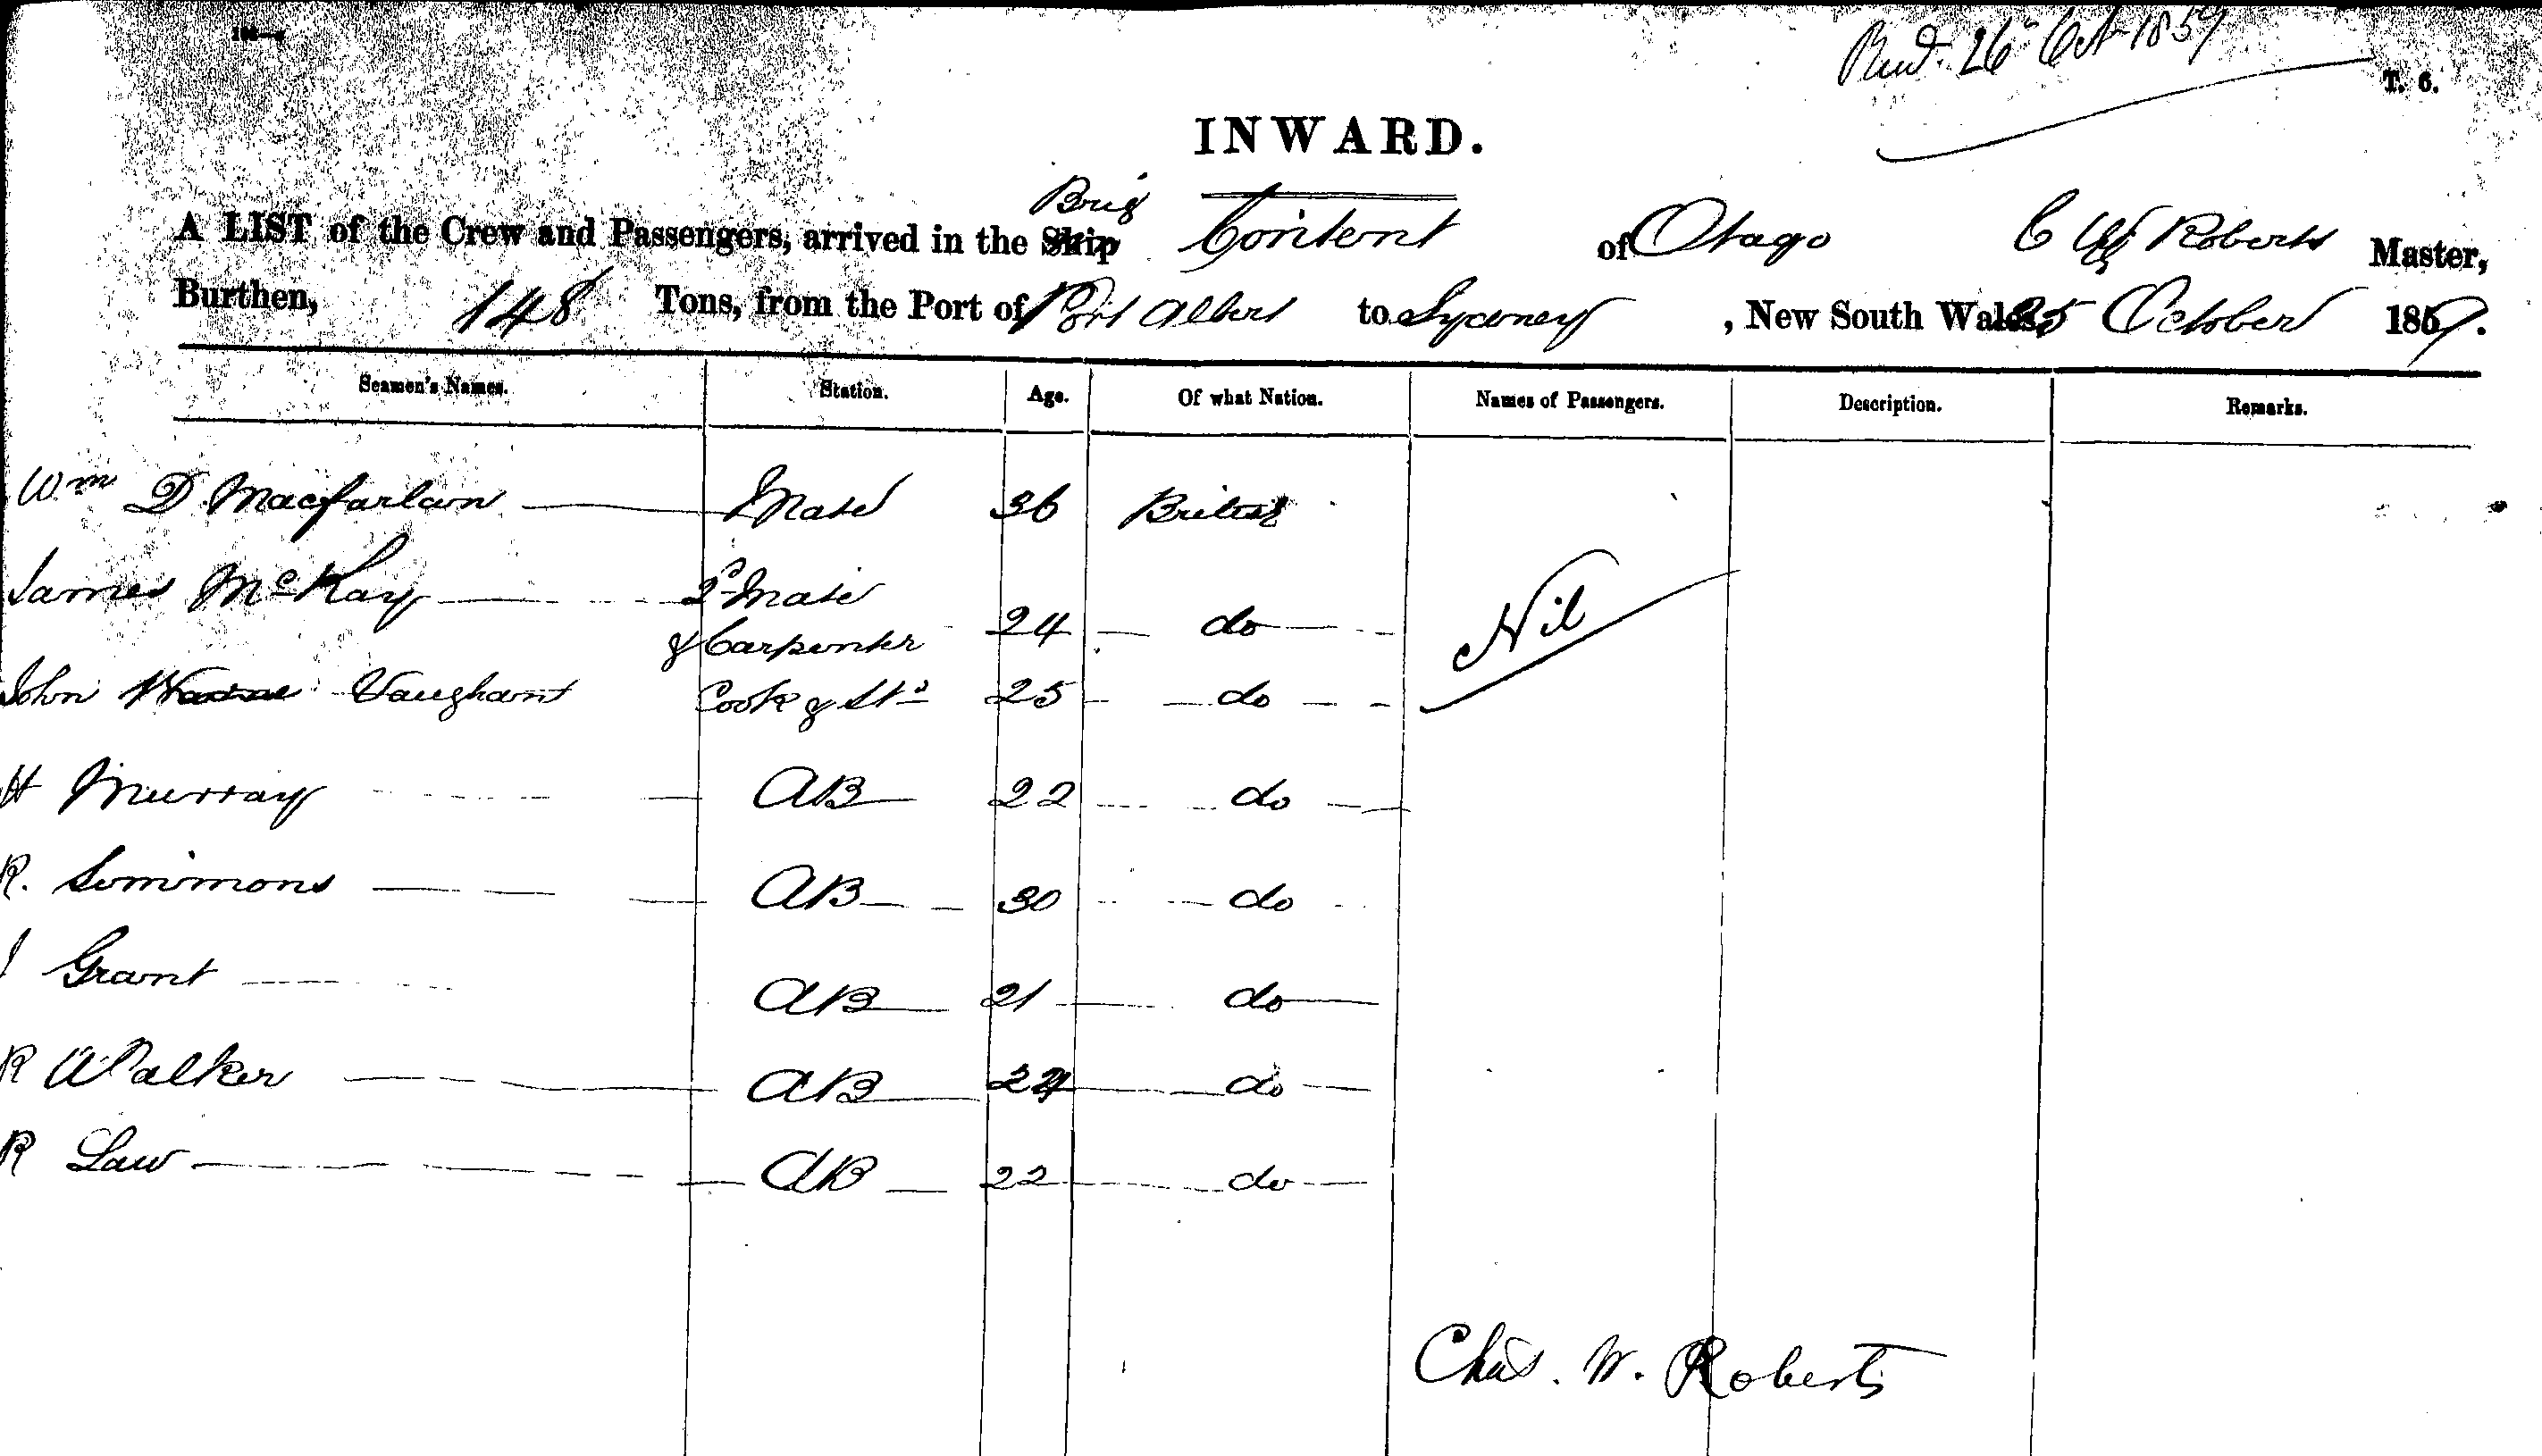 Recd. 26 Oct 1859
T. 6.
INWARD.
Brig
A LIST of the Crew and Passengers, arrived in the Ship Content of Otago C W Roberts Master,
Burthen, 148 Tons, from the Port of Port Albert to Sydney, New South Wales, 25 October 1859.
Seamen's Names. Station. Age. Of what Nation. Names of Passengers. Description. Remarks.
Wm D. Macfarlan Mate 36 British
James McKay 2d Mate
& Carpenter 24 do Nil
John Vaughan Cook & Std 25 do
H Murray AB 22 do
R. Simmons AB 30 do
J Grant AB 21 do
R Walker AB 24 do
R Law AB 22 do
Chas. W. Roberts